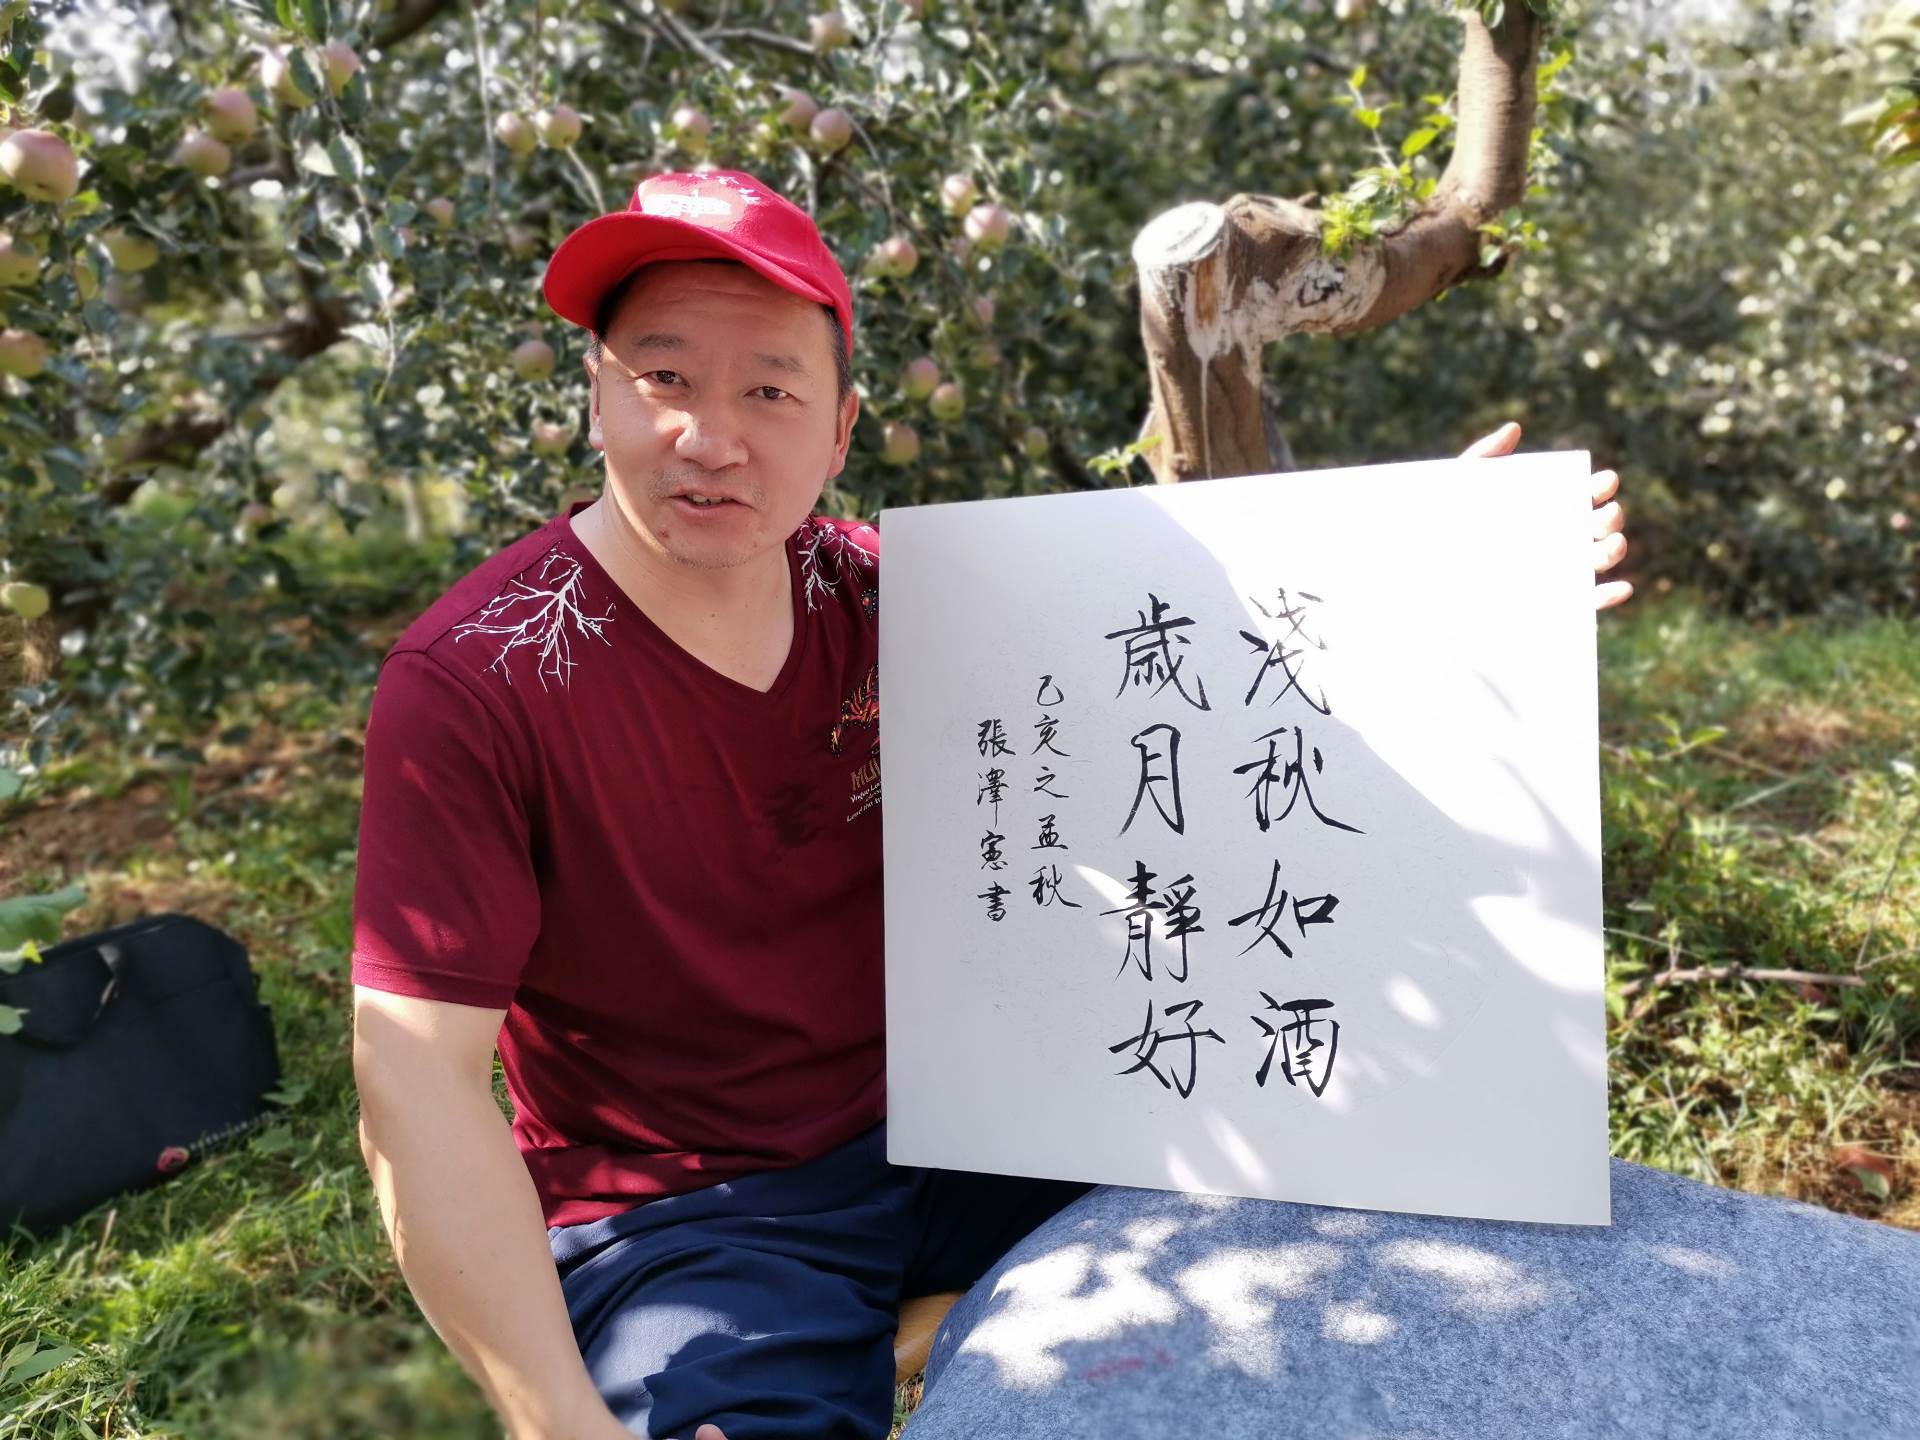 淺秋如酒
歲月靜好
乙亥之孟秋
張澤憲書